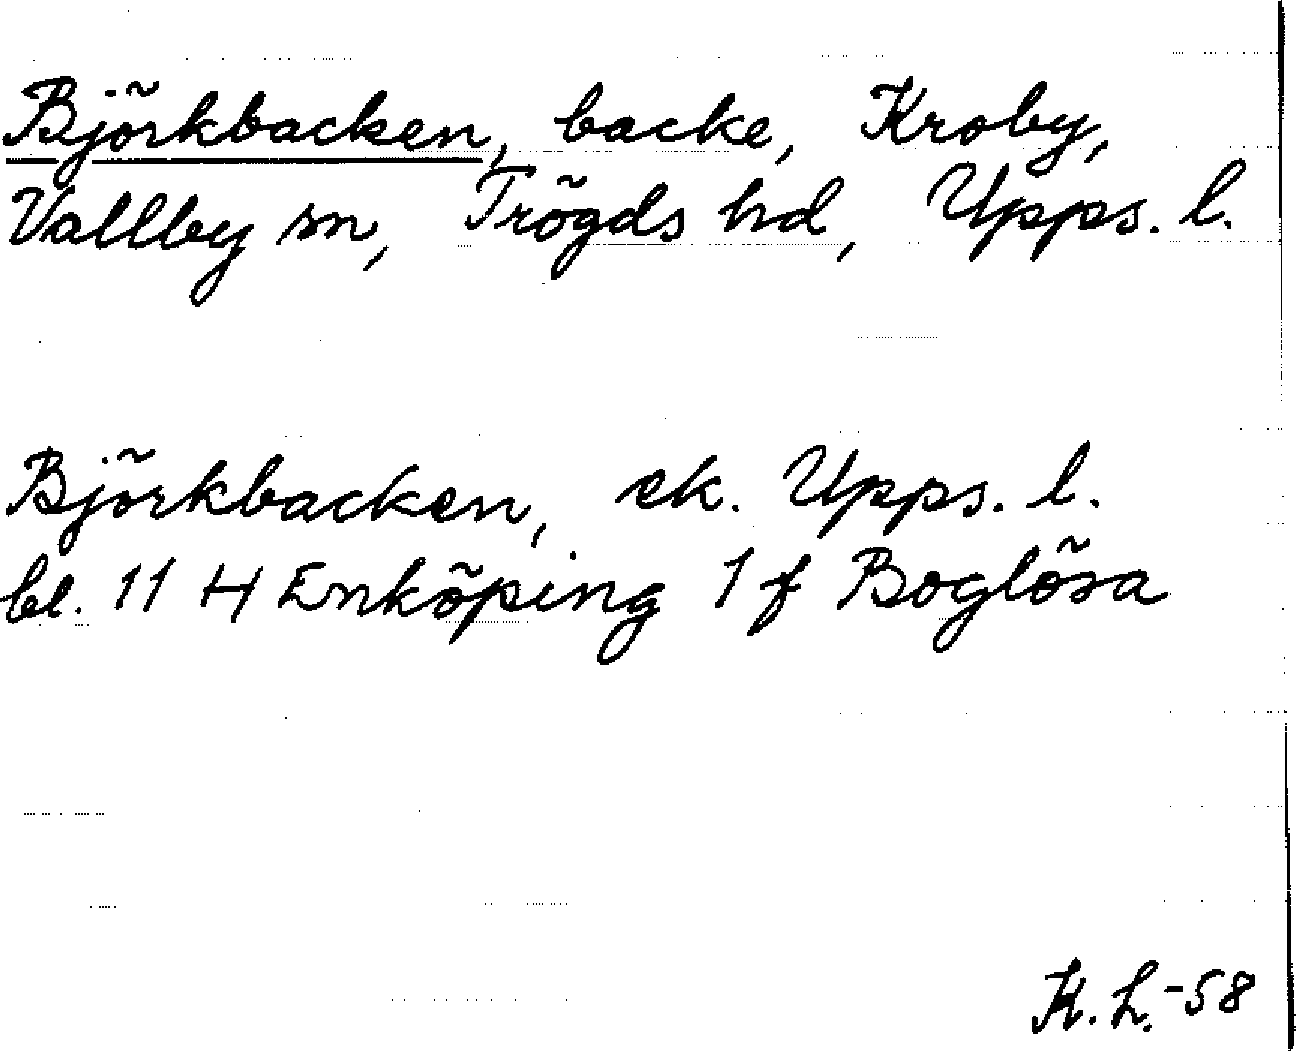 Björkbacken, backe, Kroby,
Vallby sn, Trögds hd, Upps. l.
Björkbacken, ek. Upps. l.
bl. 11 H Enköping 1 f Boglösa
K. L.-58